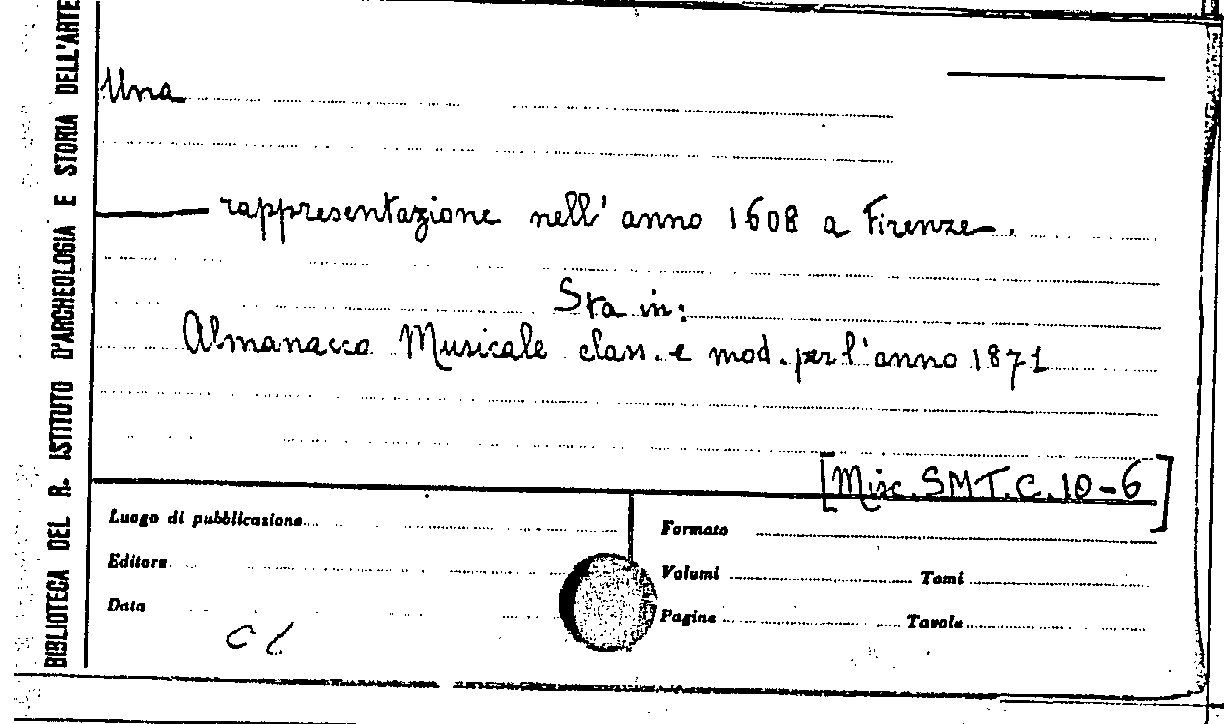 BIBLIOTECA DEL R. ISTITUTO D'ARCHEOLOGIA E STORIA DELL'ARTE
Una
rappresentazione nell'anno 1608 a Firenze.
Sta in:
Almanacco Musicale class. e mod. per l'anno 1871
[Misc. SMT. C. 10-6]
Luogo di pubblicazione
Formato
Editore
Volumi
Tomi
Data
Pagine
Tavole